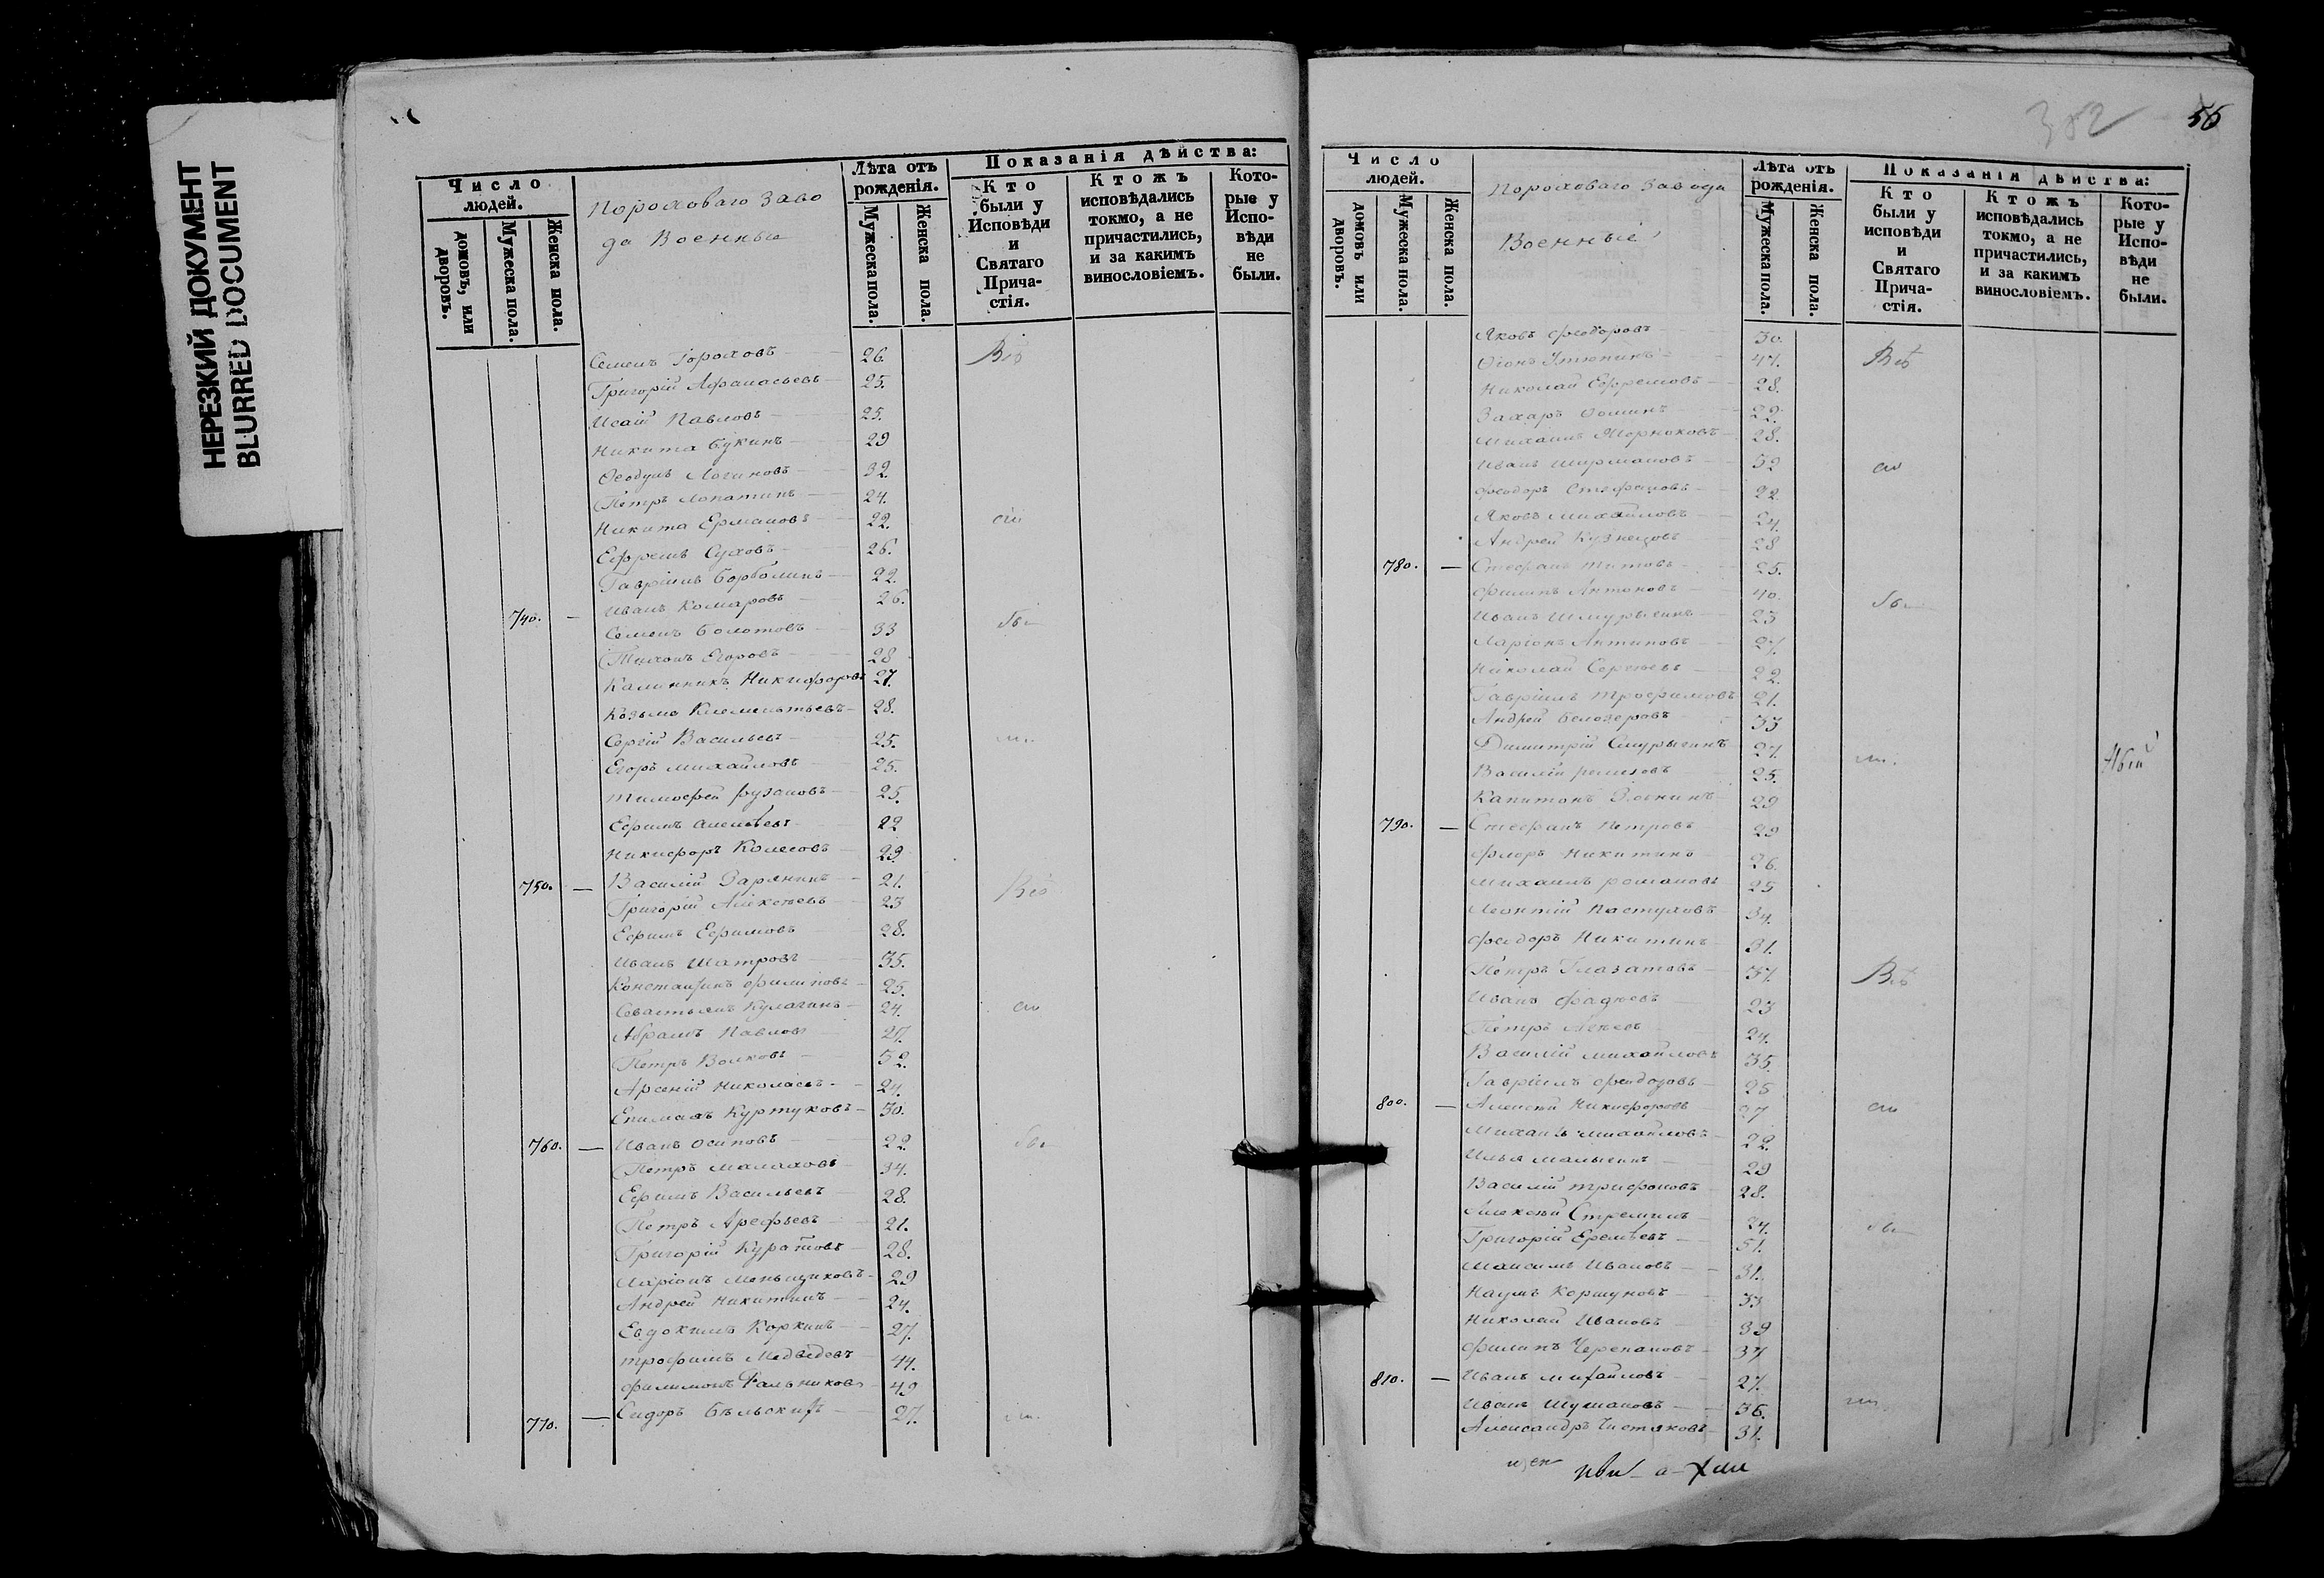 НЕРЕЗКИЙ ДОКУМЕНТ
BLURRED DOCUMENT
Число людей.
домовъ, или дворовъ.
Мужеска пола.
Женска пола.
Пороховаго Заво
да Военные
Лѣта отъ рожденія.
Мужеска пола.
Женска пола.
Показанія дѣйства:
Кто были у Исповѣди и Святаго Прича-стія.
Ктожъ исповѣдались токмо, а не причастились, и за какимъ винословіемъ.
Кото-рые у Испо-вѣди не были.
Семенъ Гороховъ 26. Всѣ
Григорій Афанасьевъ 25.
Исаій Павловъ 25.
Никита Букинъ 29
Ѳеодулъ Логиновъ 32.
Петръ Лопатинъ 24.
Никита Ермаковъ 22. сіи
Ефремъ Суховъ 26.
Гавріилъ 22.
740. — Иванъ Комаровъ 26.
Семенъ Болотовъ 33 бы
Тихонъ Егоровъ 28
Калинникъ Никифоровъ 27.
Козьма Клементьевъ 28.
Сергій Васильевъ 25. ли.
Егоръ Михайловъ 25.
Тимофей 25.
Ефимъ 22
Никифоръ Колесовъ 29
750. — Василій Зарянинъ 21.
Григорій Алексѣевъ 23 Всѣ
Ефимъ Ефимовъ 28.
Иванъ Шатровъ 35.
Константинъ Филиповъ 25.
Севастьянъ Кулагинъ 24. сіи
Абрамъ Павловъ 27.
Петръ Волковъ 32.
Арсеній Николаевъ 24.
Епимахъ Куртуковъ 30.
760. — Иванъ Осиповъ 22. бы
Петръ Малаховъ 34.
Ефимъ Васильевъ 28.
Петръ Арефьевъ 21.
Григорій Куратовъ 28.
Ларіонъ Меньщиковъ 29
Андрей Никитинъ 24.
Евдокимъ Коркинъ 27.
Трофимъ Медвѣдевъ 44.
Филимонъ 49
770. — Сидоръ Бѣльскихъ 27. ли.
382
56
Число людей.
домовъ или дворовъ.
Мужеска пола.
Женска пола.
Пороховаго Завода
Военные
Лѣта отъ рожденія.
Мужеска пола.
Женска пола.
Показанія дѣйства:
Кто были у исповѣди и Святаго Прича-стія.
Ктожъ исповѣдались токмо, а не причастились, и за какимъ винословіемъ.
Кото-рые у Испо-вѣди не были.
Яковъ Феодоровъ 30.
47. Всѣ
Николай Ефремовъ 28.
Захаръ Ѳоминъ 22.
Михаилъ 28.
Иванъ Ширмановъ 32 сіи
Феодоръ 22
Яковъ Михайловъ 24.
Андрей Кузнецовъ 28
780. — Стефанъ Титовъ 25.
Филипъ Антоновъ 40. бы
Иванъ Шмурыгинъ 23
Ларіонъ Антиповъ 27.
Николай Сергѣевъ 22.
Гавріилъ Трофимовъ 21.
Андрей Белозеровъ 33
Димитрій 27. ли.
Василій 25.
Капитонъ 29
790. — Стефанъ Петровъ 29
Флоръ Никитинъ 26.
Михаилъ Романовъ 25
Леонтій Пастуховъ 34.
Феодоръ Никитинъ 31.
Петръ Глазатовъ 37. Всѣ
Иванъ Фадѣевъ 23
Петръ 24.
Василій Михайловъ 35.
Гавріилъ Феодоровъ 25
800. — Алексѣй Никифоровъ 27 сіи
Михаилъ Михайловъ 22.
Илья Малыгинъ 29
Василій Трифоновъ 28.
Алексѣй 24. бы
Григорій Еремѣевъ 31.
Максимъ Ивановъ 31.
Наумъ Коршуновъ 33
Николай Ивановъ 39
Филипъ Черепановъ 37
810. — Иванъ Михайловъ 27.
Иванъ Шумановъ 36. ли
Александръ Чистяковъ 31.